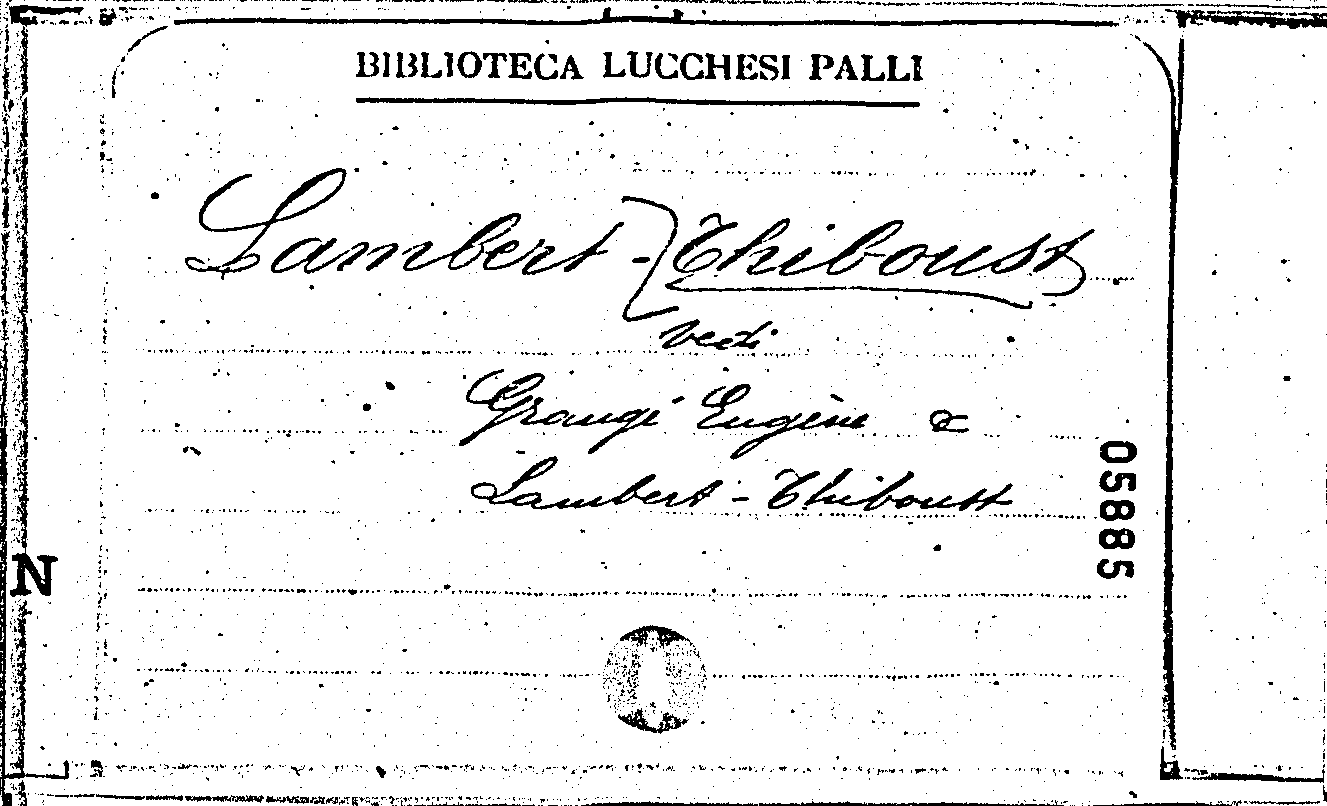 BIBLIOTECA LUCCHESI PALLI
Lambert - Thiboust
vedi
Grangé Eugène &
Lambert - Thiboust
05885
N